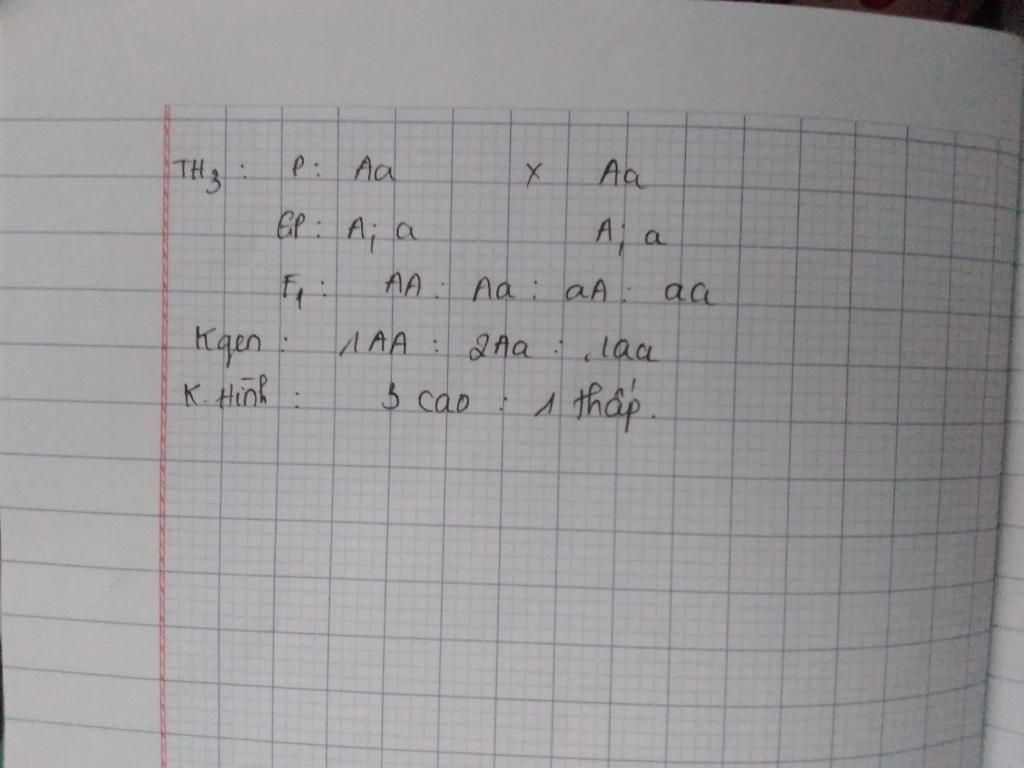 TH3 : P : Aa x Aa
GP : A; a A; a
F1 : AA : Aa : aA : aa
K gen : 1AA : 2Aa : 1aa
K. Hình : 3 cao : 1 thấp.